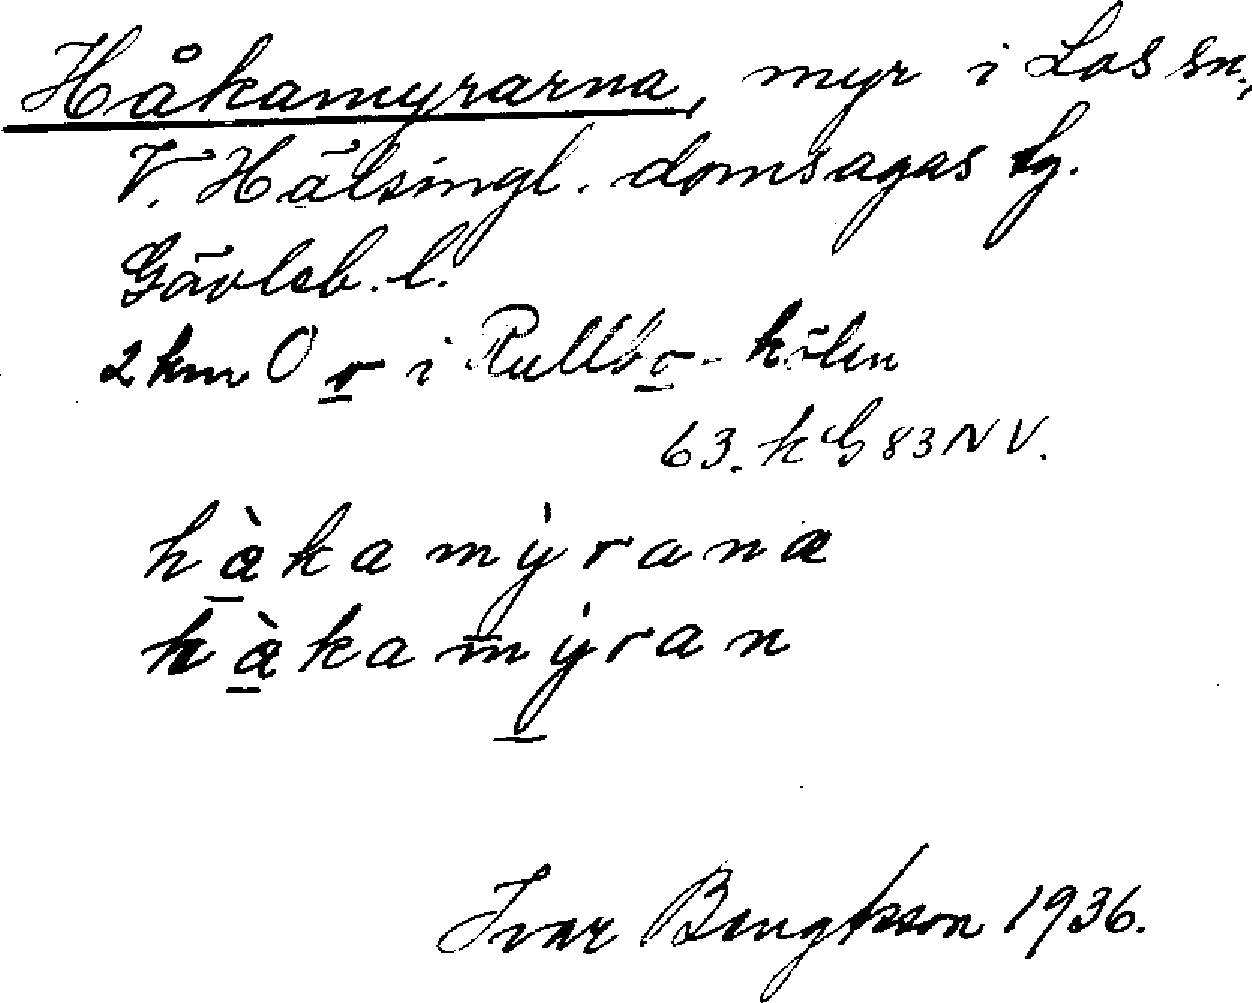 Håkamyrarna, myr i Los sn,
V. Hälsingl. domsagas tg.
Gävleb. l.
2 km O o i Rullbo-kölen
63. k G 83 NV.
hàkamýrana
hàkamýran
Ivar Bengtsson 1936.